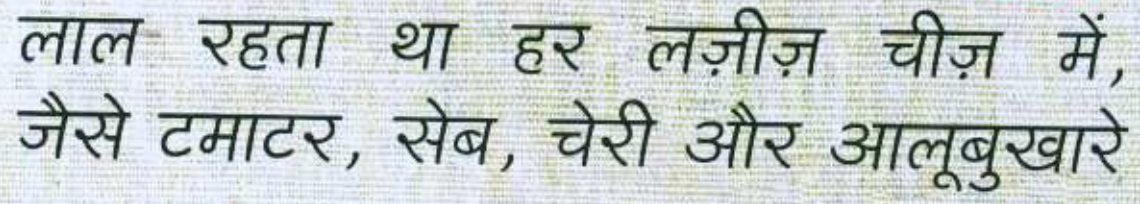 लाल रहता था हर लज़ीज़ चीज़ में,
जैसे टमाटर, सेब, चेरी और आलूबुखारे